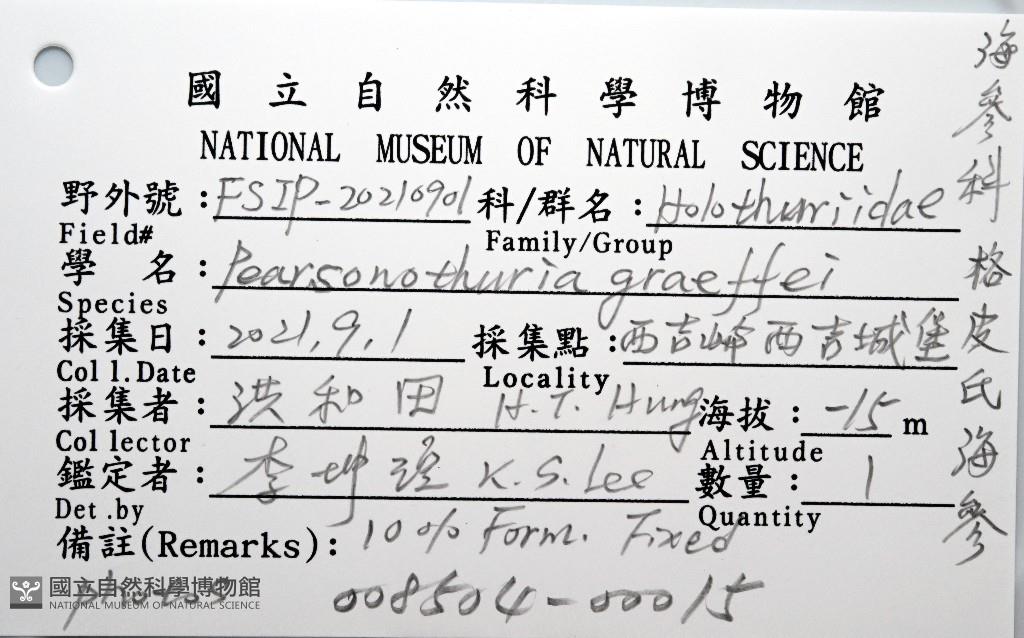 國立自然科學博物館
NATIONAL MUSEUM OF NATURAL SCIENCE
野外號：FSIP-20210901 科/群名：Holothuriidae
Field# Family/Group
學 名：Pearsonothuria graeffei
Species
採集日：2021.9.1 採集點：西吉嶼西吉城堡
Coll.Date Locality
採集者：洪和田 H.T. Hung 海拔：-15 m
Collector Altitude
鑑定者：李坤瑄 K.S. Lee 數量：1
Det.by Quantity
備註(Remarks)：10% Form. Fixed
photos 008504-00015
海參科 格皮氏海參
國立自然科學博物館
NATIONAL MUSEUM OF NATURAL SCIENCE